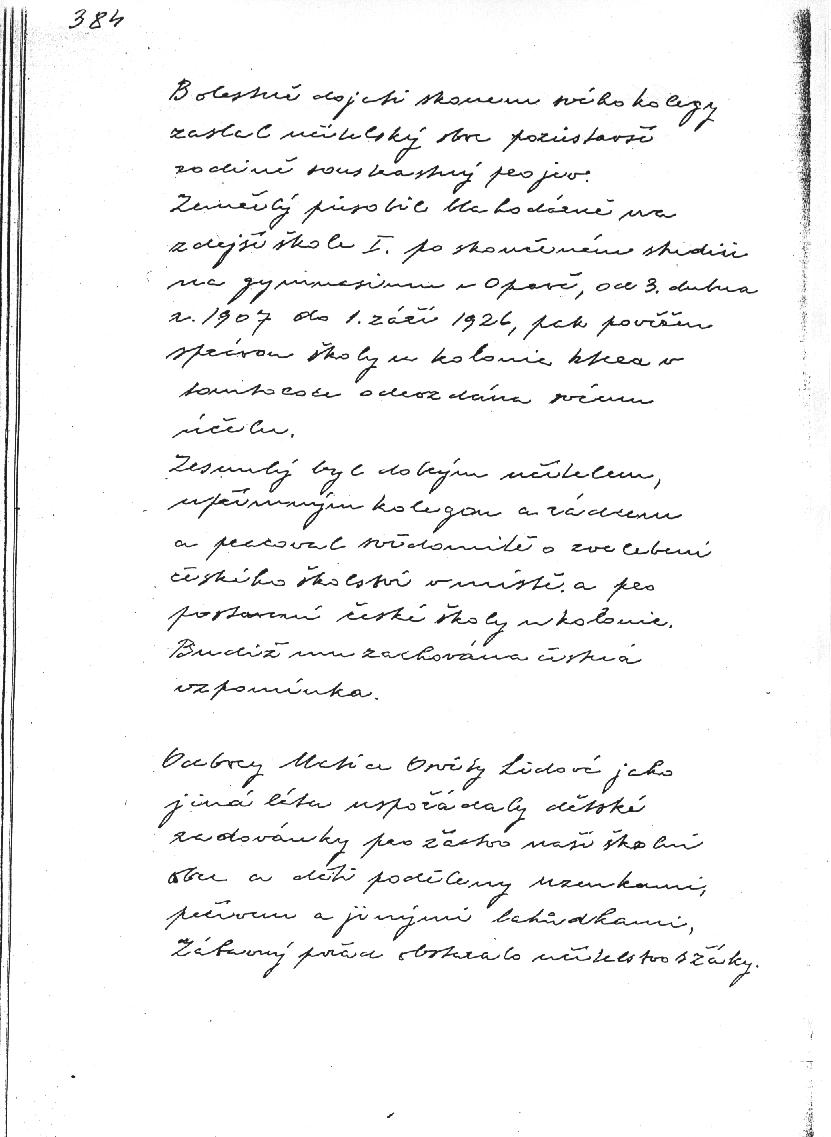 384
Bolestně dojati skonem svého kolegy
zaslal učitelský sbor pozůstavší
rodině soustrastný projev.
Zemřelý působil blahodárně na
zdejší škole I. po skončeném studiu
na gymnasium v Opavě, od 3. dubna
r. 1907 do 1. září 1926, pak pověřen
správou školy u kolonie která v
tomto roce odevzdána svému
účelu.
Zesnulý byl dobrým učitelem,
upřímným kolegou a rádcem
a pracoval svědomitě o zvelebení
českého školství v místě a pro
postavení české školy u kolonie.
Budiž mu zachována čestná
vzpomínka.
Odbory Matice Osvěty Lidové jako
jiná léta uspořádaly dětské
radovánky pro žactvo naší školní
obce a děti poděleny uzenkami,
pečivem a jinými lahůdkami,
Zábavný pořad obstaralo učitelstvo s žáky.